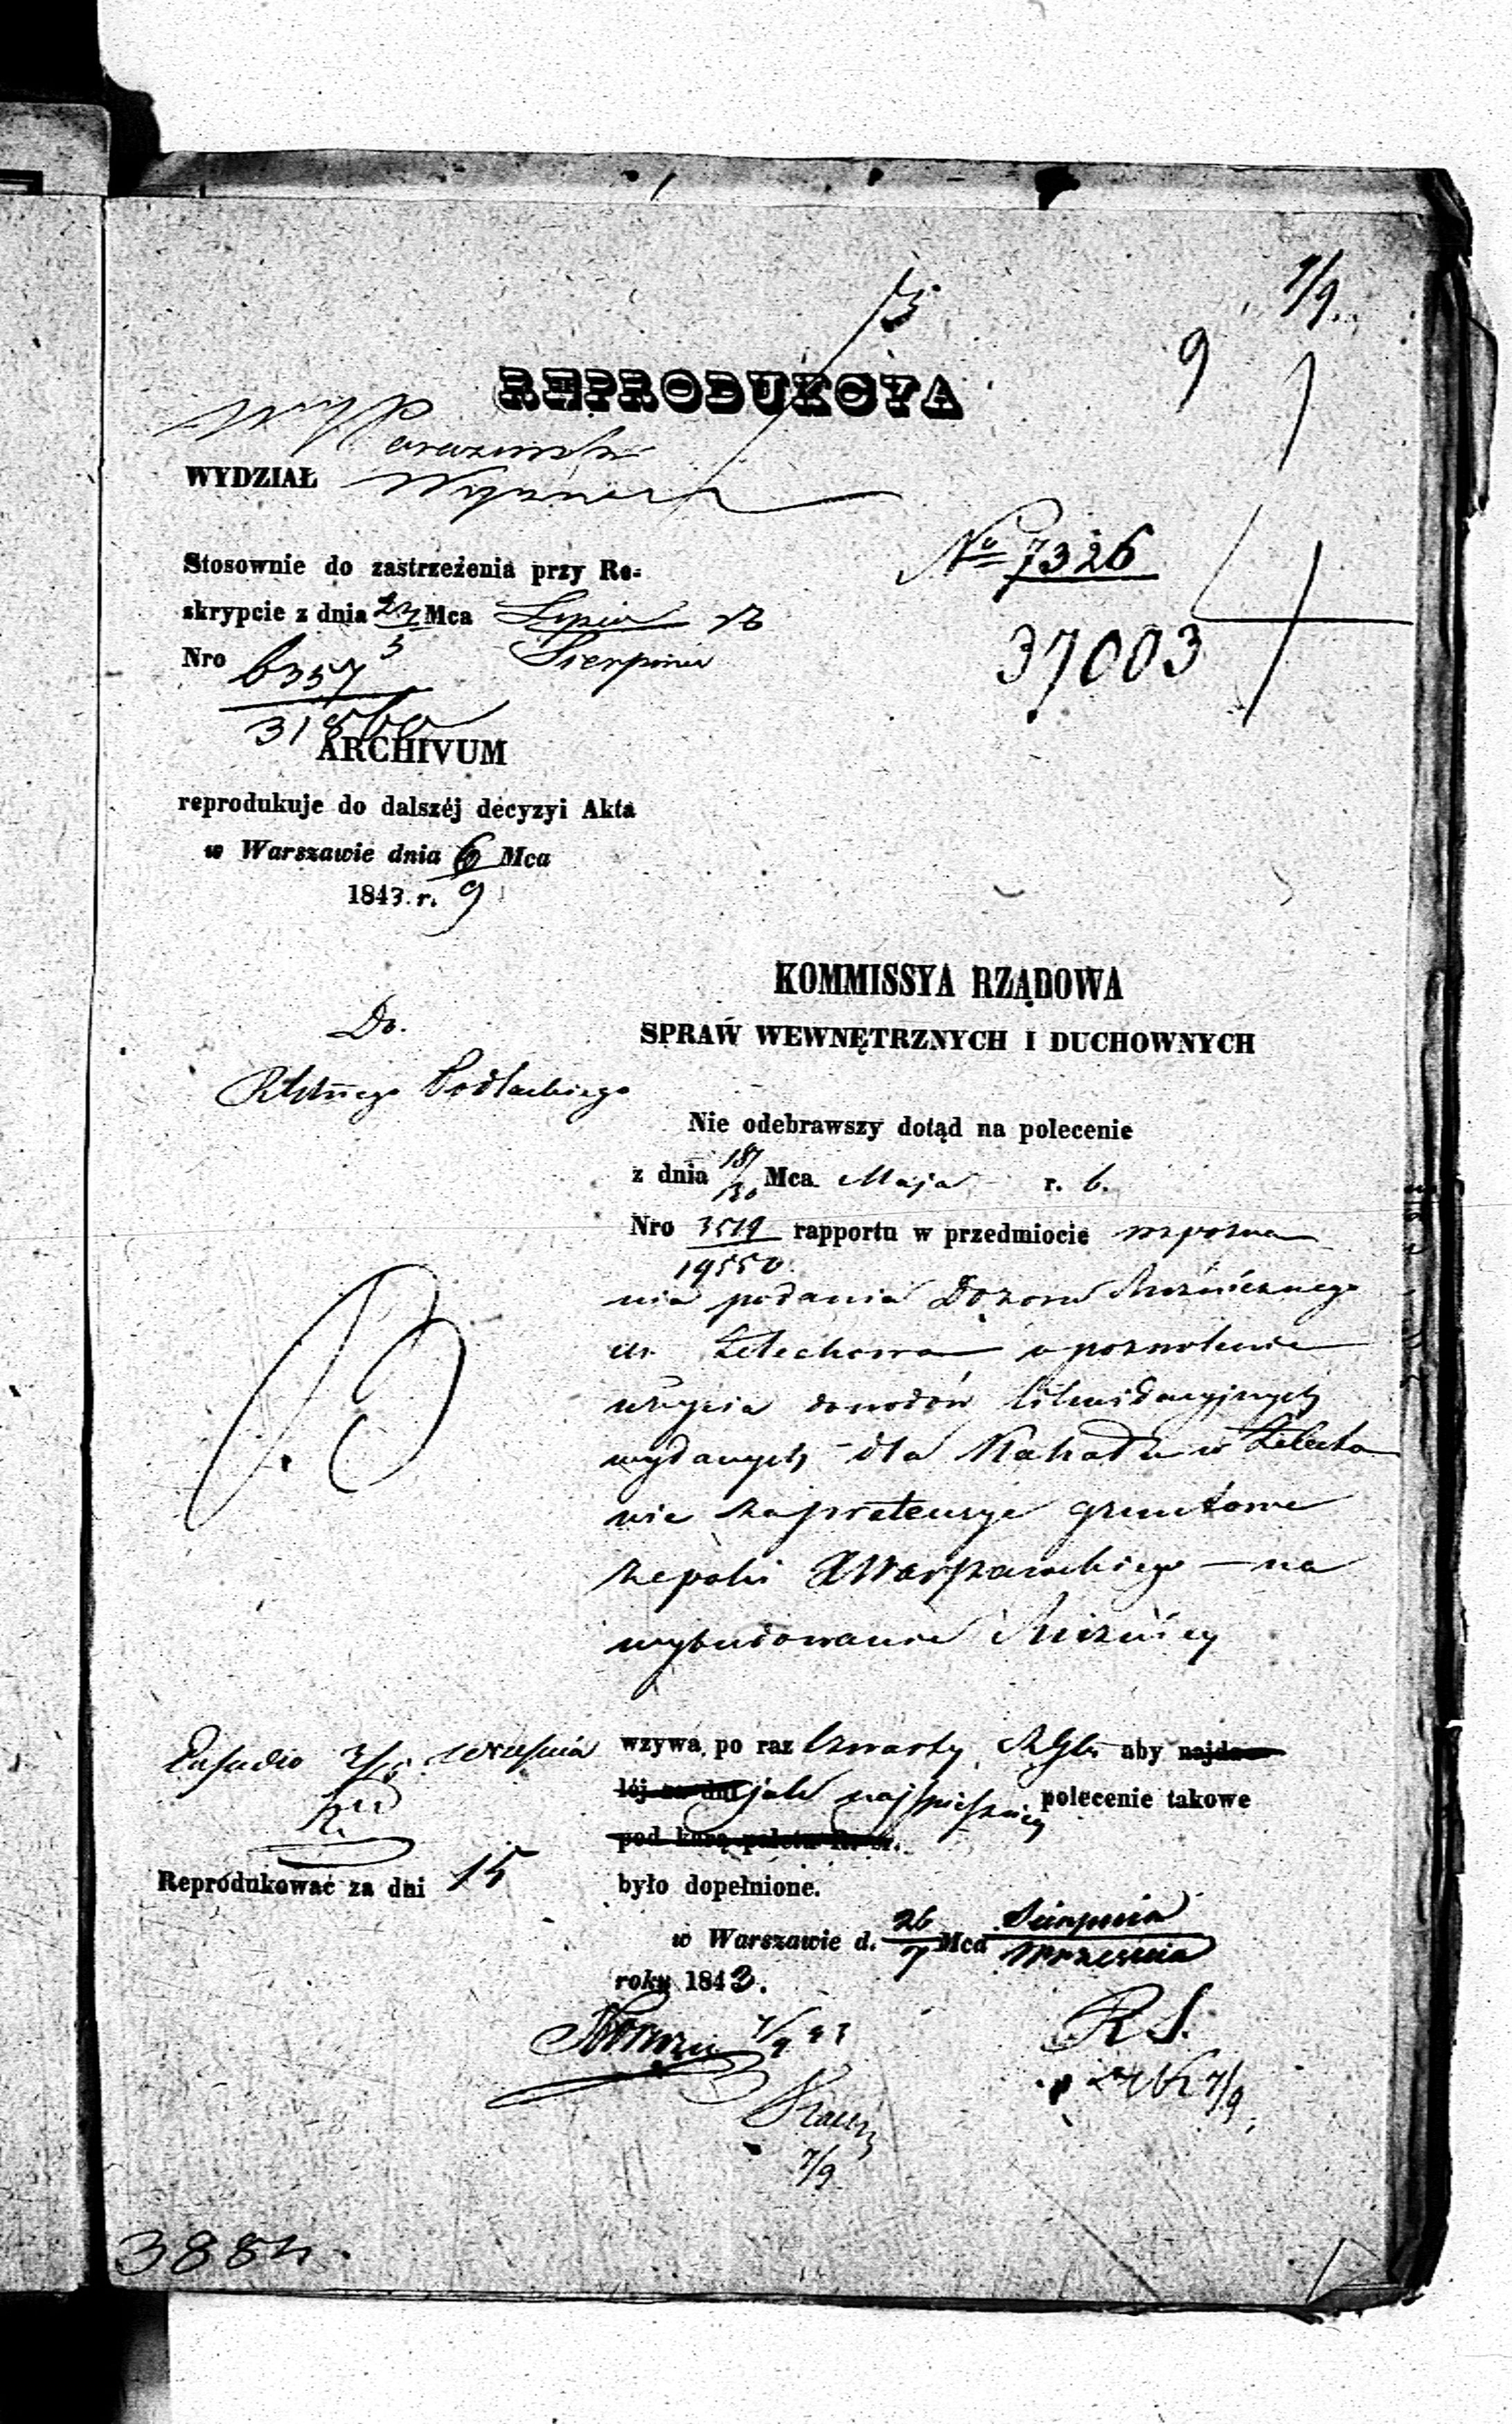 7/9
9
REPRODUKCYA
WYDZIAŁ Wyznań
Stosownie do zastrzeżenia przy Re-
skrypcie z dnia 23 Mca Lipca rb
5 Sierpnia
Nro 6357
31860
No 7326
37003
ARCHIVUM
reprodukuje do dalszéj decyzyi Akta
w Warszawie dnia 6 Mca
1843. r. 9
KOMMISSYA RZĄDOWA
SPRAW WEWNĘTRZNYCH I DUCHOWNYCH
Do
Podlaskiego
Nie odebrawszy dotąd na polecenie
z dnia 18/30 Mca Maja r. b.
Nro 3519 rapportu w przedmiocie rozpozna
19550.
nia podania Dozoru Bóżnicznego
m. Żelechowa o pozwolenie
użycia dowodów likwidacyjnych
wydanych dla Kahału w Żelecho
wie za pretensye gruntowe
zepoki XWarszawskiego – na
wybudowanie Bóżnicy
wzywa, po raz czwarty RGbr aby najda
léj za dni jak najspieszniej polecenie takowe
było dopełnione.
3/15 Września
Reprodukować za dni 15
w Warszawie d. 26/7 Mca Sierpnia
Września
roku 1843.
7/9 43
RS.
7/9
7/9
3884.